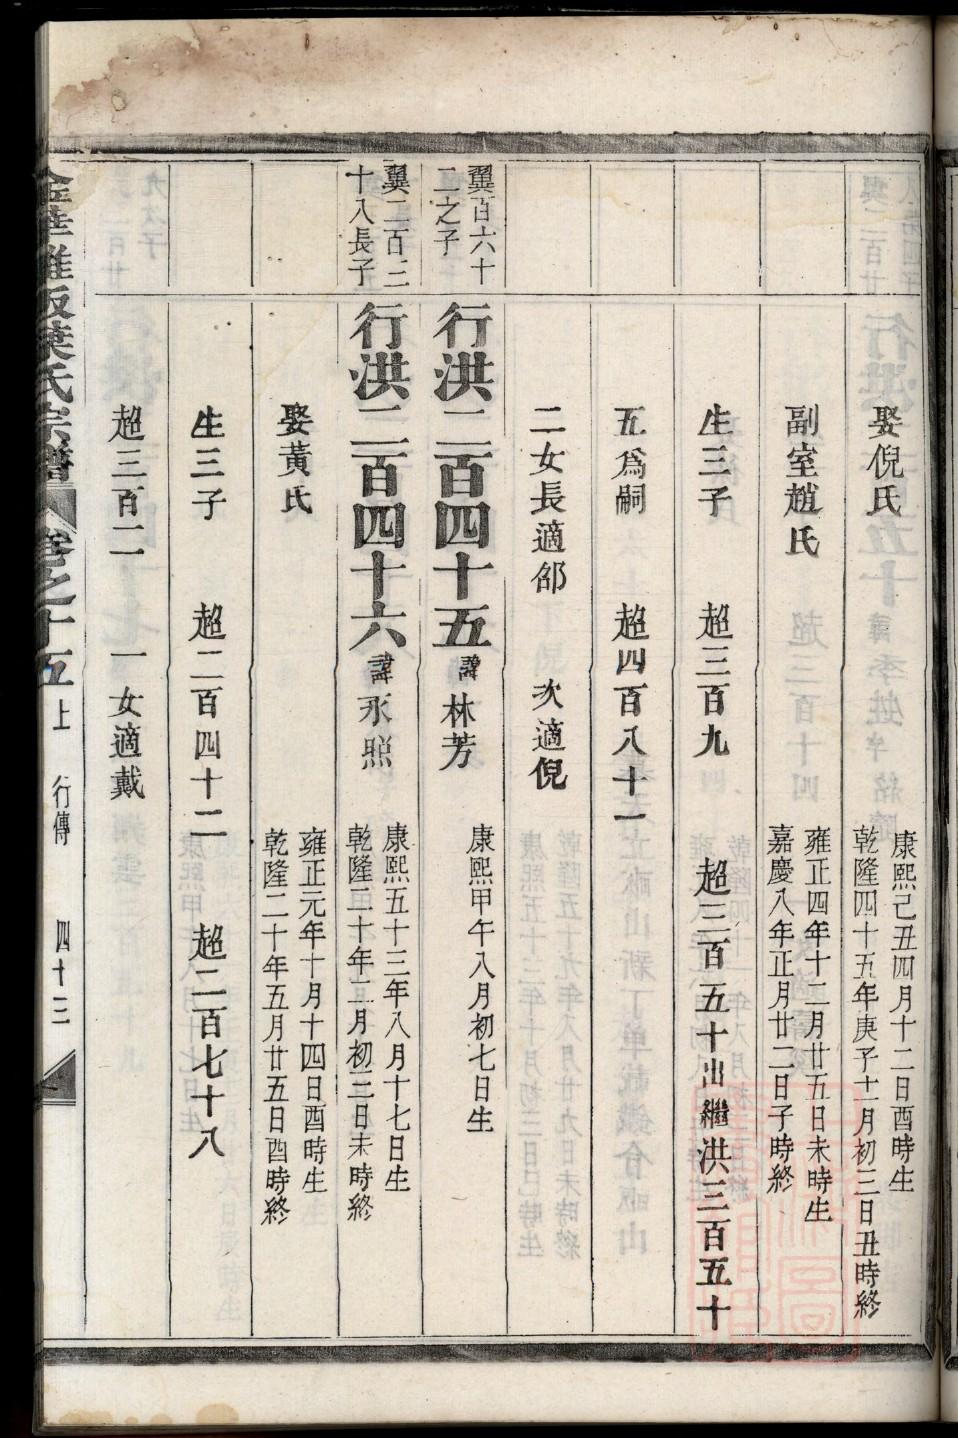 娶倪氏 康熙己丑四月十二日酉時生
乾隆四十五年庚子十一月初三日丑時終
副室趙氏 雍正四年十二月廿五日未時生
嘉慶八年正月廿二日子時終
生三子 超三百九 超三百五十出繼洪三百五十
五爲嗣 超四百八十一
二女長適邰 次適倪
翼百六十
二之子
行洪二百四十五 諱林芳 康熙甲午八月初七日生
翼二百二
十八長子
行洪二百四十六 諱永照 康熙五十三年八月十七日生
乾隆二十年二月初三日未時終
娶黃氏 雍正元年十月十四日酉時生
乾隆二十年五月廿五日酉時終
生三子 超二百四十二 超二百七十八
超三百二 一女適戴
金華雅畈葉氏宗譜 卷之十五上 行傳 四十三